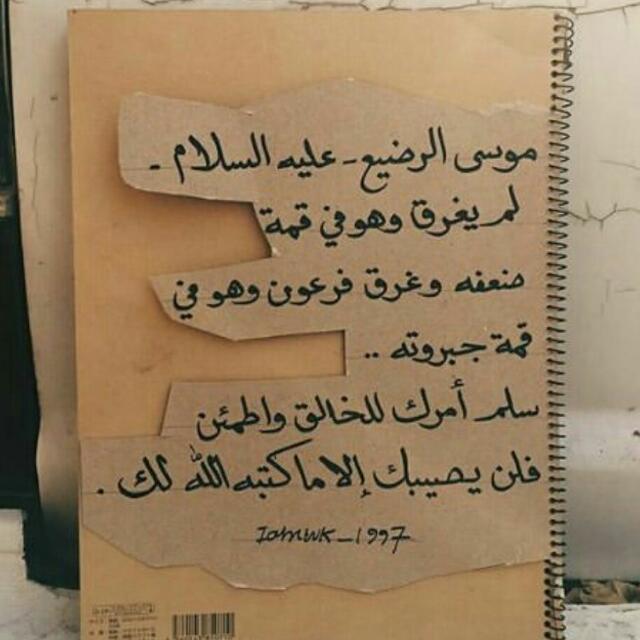 موسى الرضيع - عليه السلام -
لم يغرق وهو في قمة
ضعفه وغرق فرعون وهو في
قمة جبروته ..
سلم أمرك للخالق واطمئن
فلن يصيبك إلا ما كتبه الله لك .
Iamwk_1997